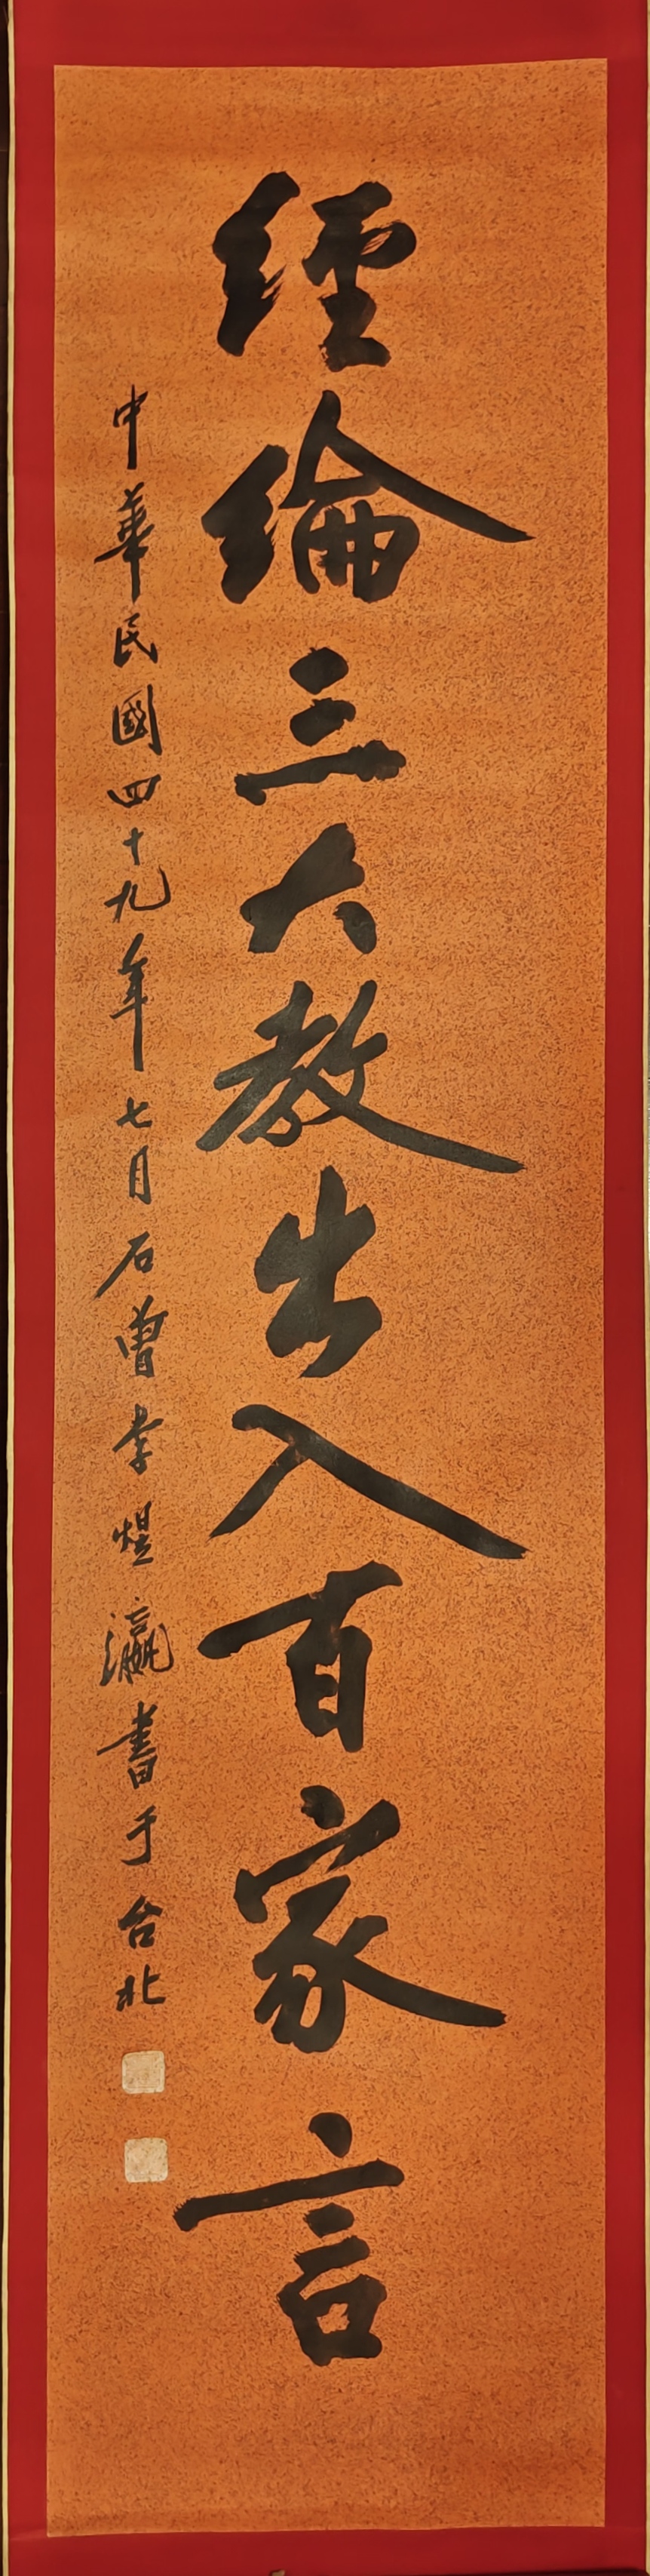 經綸三大教出入百家言
中華民國四十九年七月石曾李煜瀛書于台北